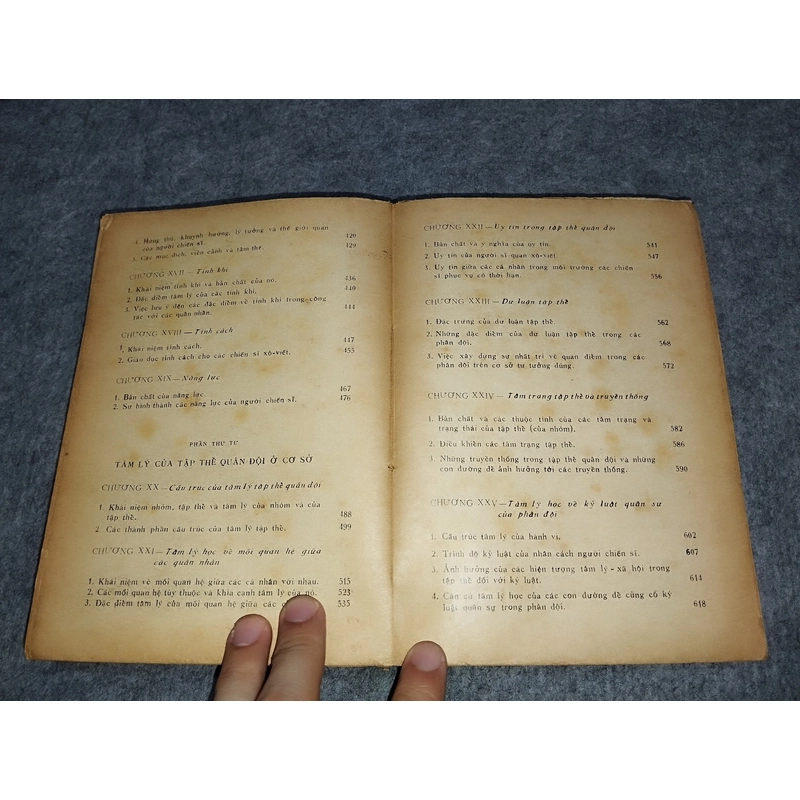 4. Hứng thú, khuynh hướng, lý tưởng và thế giới quan
của người chiến sĩ. 420
5. Các mục đích, viễn cảnh và tâm thế. 429
CHƯƠNG XVII — Tính khí
1. Khái niệm tính khí và bản chất của nó. 436
2. Đặc điểm tâm lý của các tính khí. 440
3. Việc lưu ý đến các đặc điểm về tính khí trong công
tác với các quân nhân. 444
CHƯƠNG XVIII — Tính cách
1. Khái niệm tính cách. 447
2. Giáo dục tính cách cho các chiến sĩ xô-viết. 455
CHƯƠNG XIX — Năng lực
1. Bản chất của năng lực 467
2. Sự hình thành các năng lực của người chiến sĩ. 476
PHẦN THỨ TƯ
TÂM LÝ CỦA TẬP THỂ QUÂN ĐỘI Ở CƠ SỞ
CHƯƠNG XX — Cấu trúc của tâm lý tập thể quân đội
1. Khái niệm nhóm, tập thể và tâm lý của nhóm và của
tập thể. 488
2. Các thành phần cấu trúc của tâm lý tập thể. 499
CHƯƠNG XXI — Tâm lý học về mối quan hệ giữa
các quân nhân
1. Khái niệm về mối quan hệ giữa các cá nhân với nhau. 515
2. Các mối quan hệ tùy thuộc và khía cạnh tâm lý của nó. 523
3. Đặc điểm tâm lý của mối quan hệ giữa các 535
CHƯƠNG XXII — Uy tín trong tập thể quân đội
1. Bản chất và ý nghĩa của uy tín. 541
2. Uy tín của người sĩ quan xô-viết. 547
3. Uy tín giữa các cá nhân trong môi trường các chiến
sĩ phục vụ có thời hạn. 556
CHƯƠNG XXIII — Dư luận tập thể
1. Đặc trưng của dư luận tập thể. 562
2. Những đặc điểm của dư luận tập thể trong các
phân đội. 568
3. Việc xây dựng sự nhất trí về quan điểm trong các
phân đội trên cơ sở tư tưởng đúng. 572
CHƯƠNG XXIV — Tâm trạng tập thể và truyền thống
1. Bản chất và các thuộc tính của các tâm trạng và
trạng thái của tập thể (của nhóm). 582
2. Điều khiển các tâm trạng tập thể. 586
3. Những truyền thống trong tập thể quân đội và những
con đường để ảnh hưởng tới các truyền thống. 590
CHƯƠNG XXV — Tâm lý học về kỷ luật quân sự
của phân đội
1. Cấu trúc tâm lý của hành vi. 602
2. Trình độ kỷ luật của nhân cách người chiến sĩ. 607
3. Ảnh hưởng của các hiện tượng tâm lý - xã hội trong
tập thể đối với kỷ luật. 614
4. Căn cứ tâm lý học của các con đường để củng cố kỷ
luật quân sự trong phân đội. 618